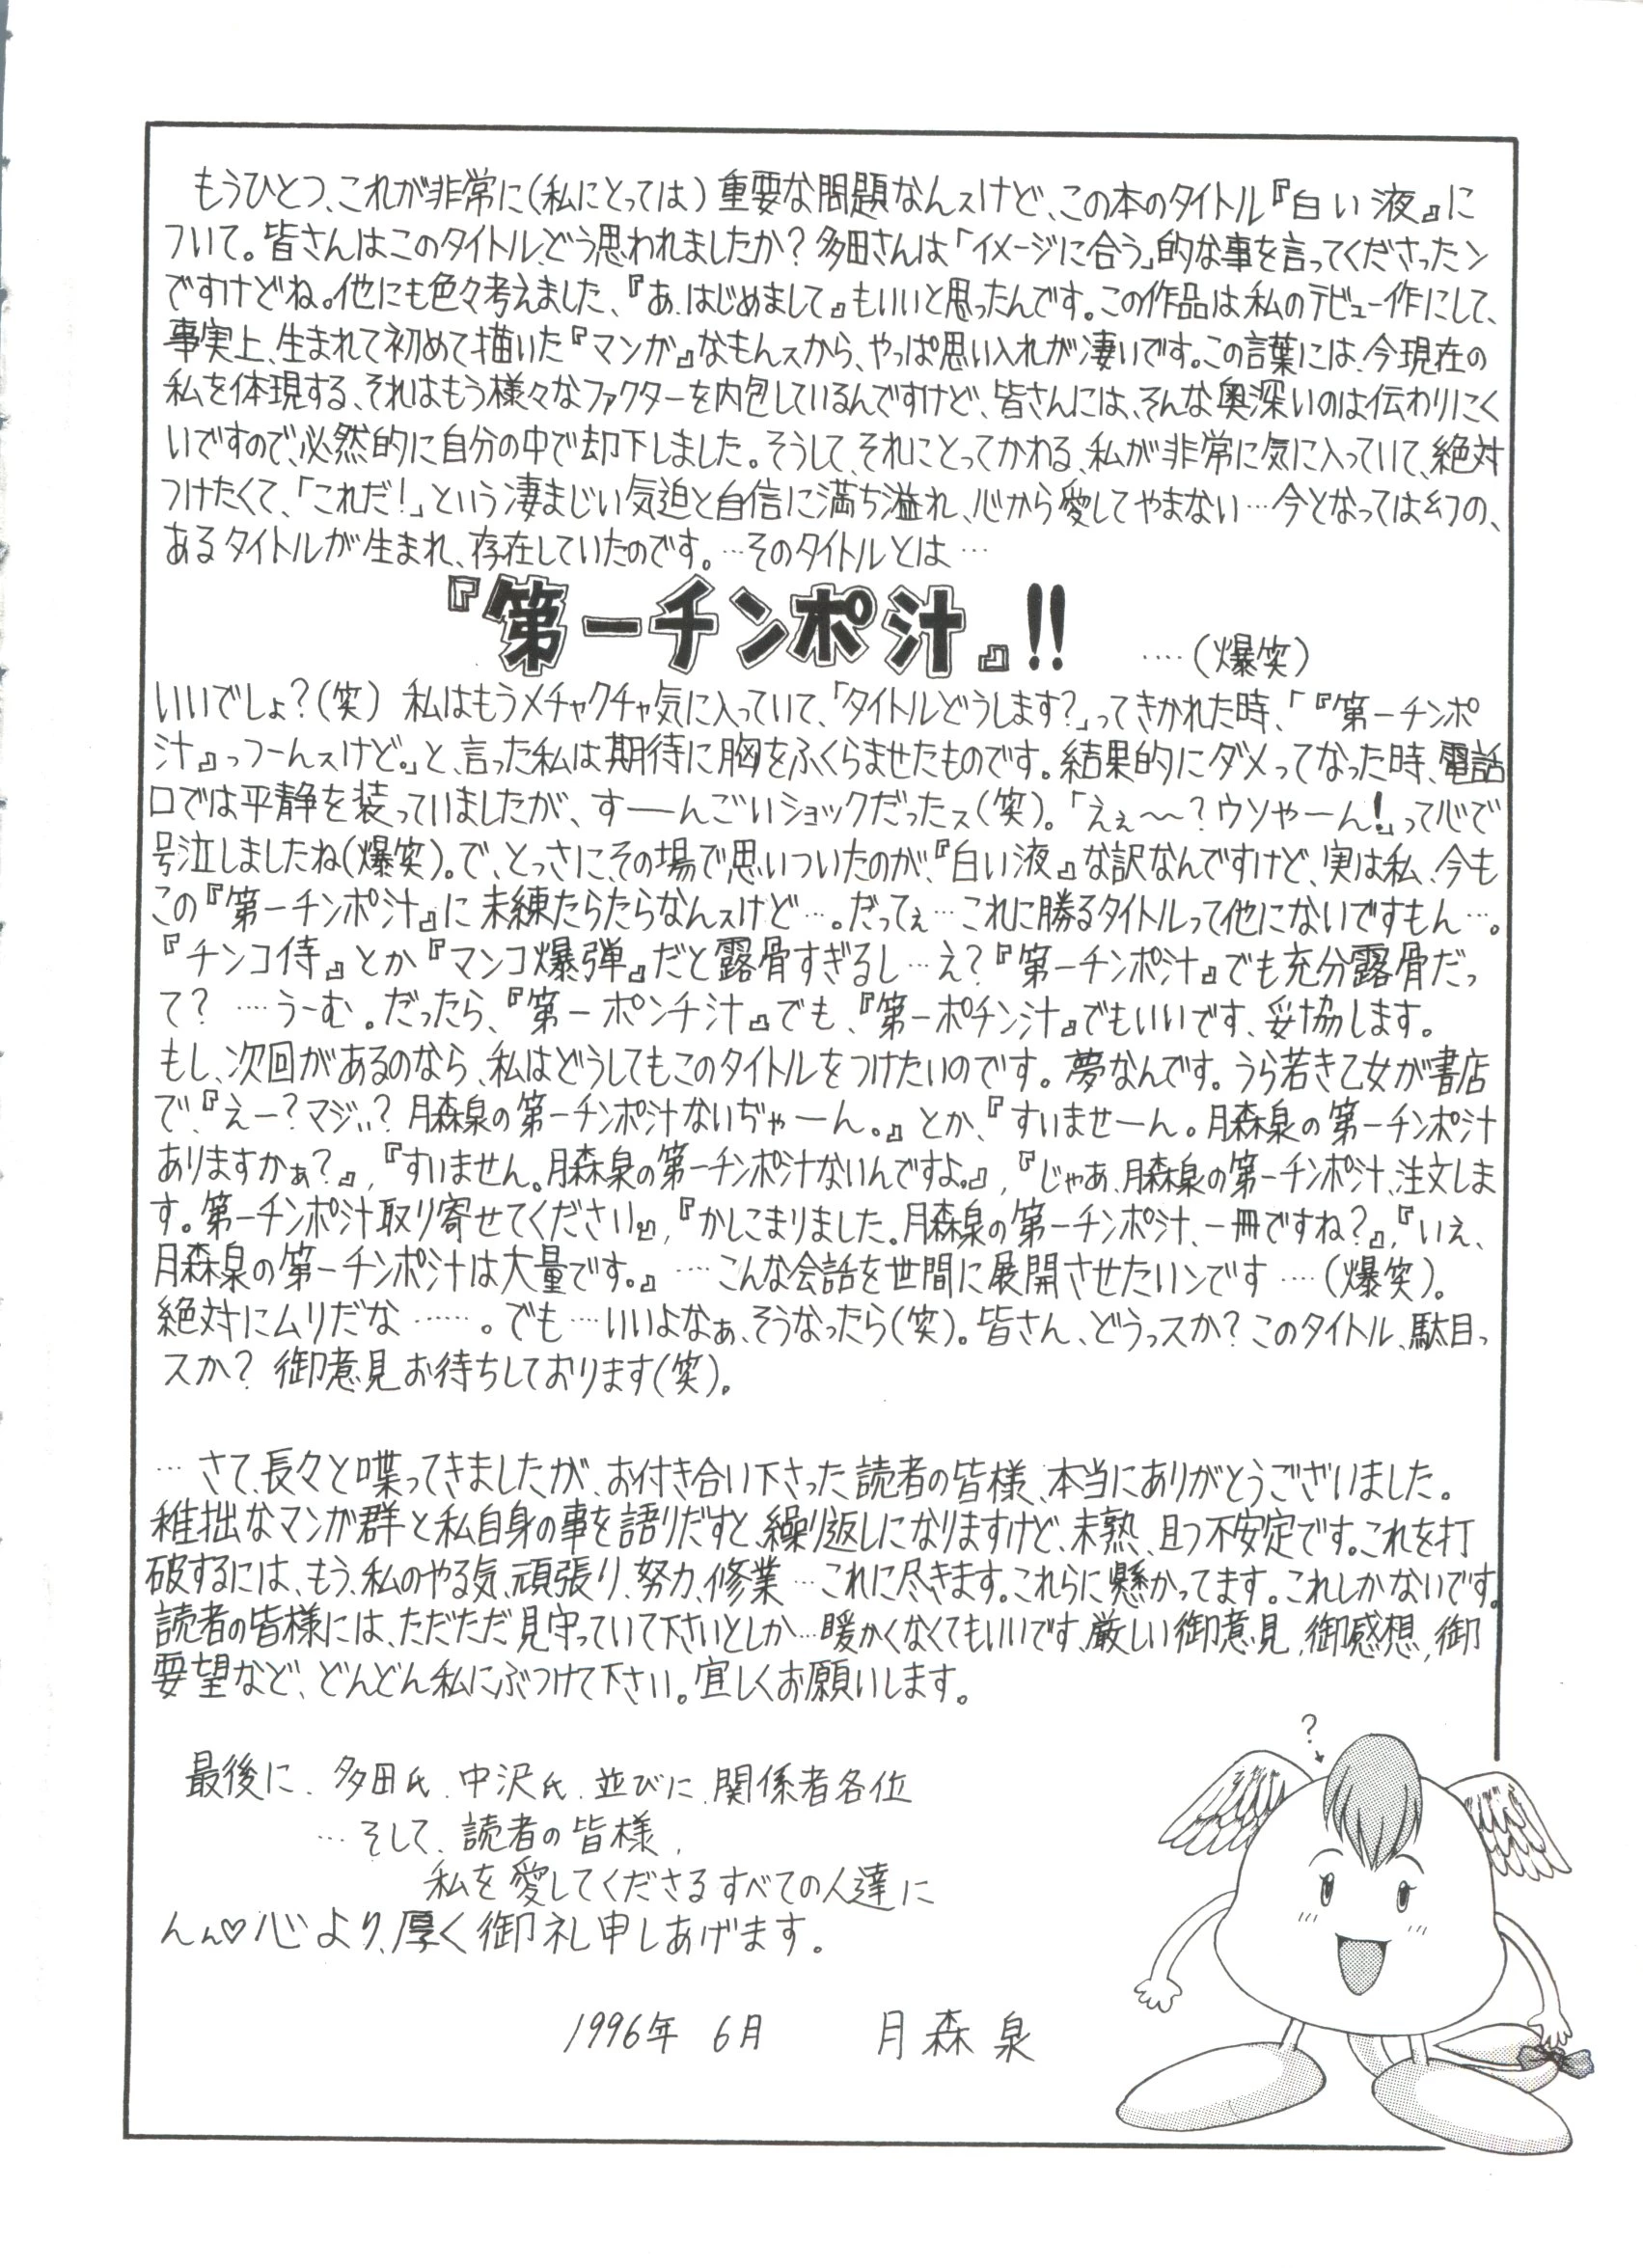 もうひとつ、これが非常に(私にとっては)重要な問題なんスけど、この本のタイトル『白い液』に
ついて。皆さんはこのタイトル、どう思われましたか?多田さんは「イメージに合う」的な事を言ってくださったン
ですけどね。他にも色々考えました、『あ、はじめまして』もいいと思ったんです。この作品は私のデビュー作にして、
事実上、生まれて初めて描いた『マンガ』なもんスから、やっぱ思い入れが凄いです。この言葉には、今現在の
私を体現する、それはもう様々なファクターを内包しているんですけど、皆さんには、そんな奥深いのは伝わりにく
いですので、必然的に自分の中で却下しました。そうして、それにとってかわる、私が非常に気に入っていて、絶対
つけたくて、「これだ!」という凄まじい気迫と自信に満ち溢れ、心から愛してやまない…今となっては幻の、
あるタイトルが生まれ、存在していたのです。…そのタイトルとは…
『第一チンポ汁』!! ‥‥(爆笑)
いいでしょ?(笑) 私はもうメチャクチャ気に入っていて、「タイトルどうします?」ってきかれた時、「『第一チンポ
汁』っつーんスけど。」と、言った私は期待に胸をふくらませたものです。結果的にダメってなった時、電話
口では平静を装っていましたが、すーーんごいショックだったス(笑)。「えぇ〜〜?ウソやーん!」って心で
号泣しましたね(爆笑)。で、とっさに、その場で思いついたのが、『白い液』な訳なんですけど、実は私、今も
この『第一チンポ汁』に未練たらたらなんスけど…。だってぇ…これに勝るタイトルって他にないですもん…。
『チンコ侍』とか『マンコ爆弾』だと露骨すぎるし…え?『第一チンポ汁』でも充分露骨だっ
て? …うーむ。だったら、『第一ポンチ汁』でも、『第一ポチン汁』でもいいです、妥協します。
もし、次回があるのなら、私はどうしてもこのタイトルをつけたいのです。夢なんです。うら若き乙女が書店
で、『えー?マジぃ?月森泉の第一チンポ汁ないぢゃーん。』とか、『すいませーん。月森泉の第一チンポ汁
ありますかぁ?』,『すいません。月森泉の第一チンポ汁ないんですよ。』,『じゃあ、月森泉の第一チンポ汁、注文しま
す。第一チンポ汁取り寄せてください。』,『かしこまりました。月森泉の第一チンポ汁、一冊ですね?』,『いえ、
月森泉の第一チンポ汁は大量です。』‥‥こんな会話を世間に展開させたいンです‥‥(爆笑)。
絶対にムリだな……。でも…いいよなぁ、そうなったら(笑)。皆さん、どうっスか?このタイトル、駄目っ
スか?御意見お待ちしております(笑)。
…さて、長々と喋ってきましたが、お付き合い下さった読者の皆様、本当にありがとうございました。
稚拙なマンガ群と私自身の事を語りだすと、繰り返しになりますけど、未熟、且つ不安定です。これを打
破するには、もう、私のやる気、頑張り、努力、修業…これに尽きます。これらに懸かってます。これしかないです。
読者の皆様には、ただただ見守っていて下さいとしか…暖かくなくてもいいです、厳しい御意見,御感想,御
要望など、どんどん私にぶつけて下さい。宜しくお願いします。
?
最後に、多田氏、中沢氏、並びに、関係者各位
…そして、読者の皆様,
私を愛してくださるすべての人達に
んん♡心より、厚く御礼申しあげます。
1996年 6月 月森泉